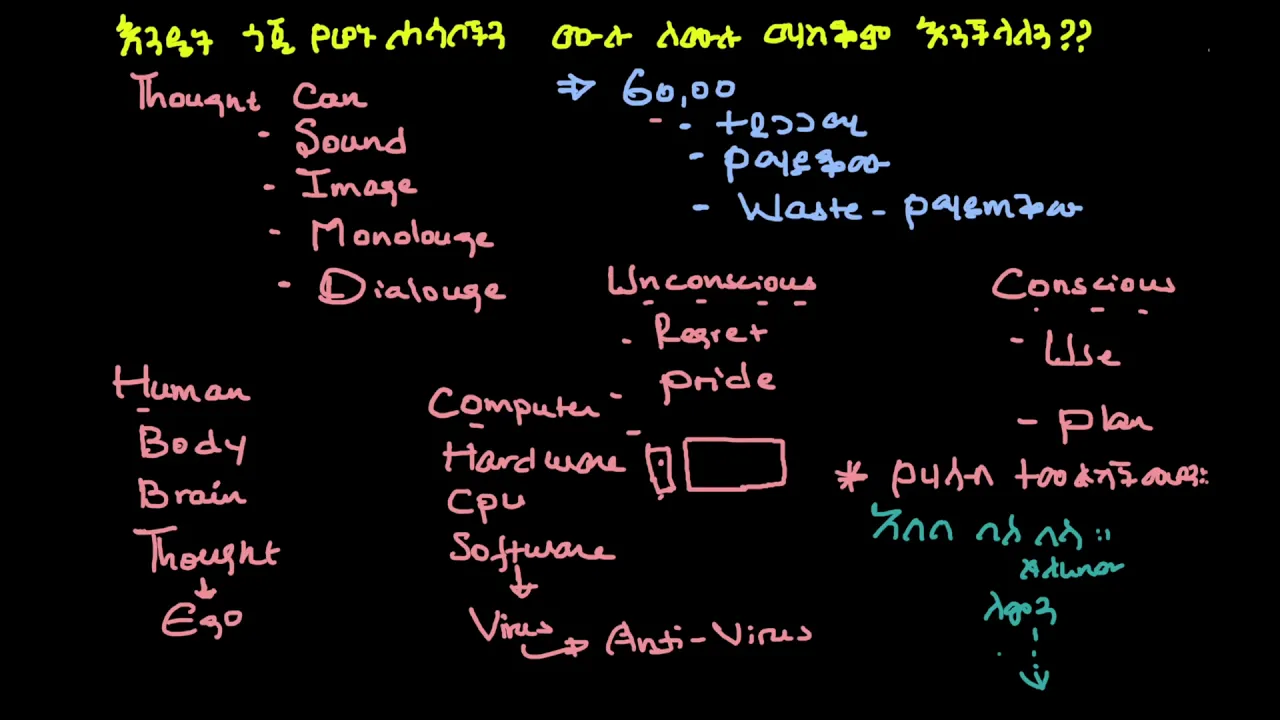 እንዴት ጎጂ የሆኑ ሐሳቦችን ሙሉ ለሙሉ ማስቆም እንችላለን??
Thought Can
- Sound
- Image
- Monolouge
- Dialouge
⇒ 60,00
- ተደጋጋሚ
- የማይጠቅሙ
- Waste - የማይጠቅሙ
Unconscious
- Regret
- Pride
Conscious
- Use
- Plan
Human
Body
Brain
Thought
↓
Ego
Computer
Hardware
Cpu
Software
↓
Virus → Anti-Virus
* የሃሳብ ተመልካች
ለምን